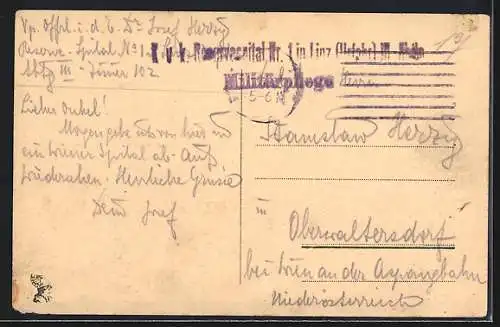 Vp. Offzl. i. d. E. Dr Josef Herzig
Reserve-Spital No 1.
Abtg III - Zimer 102
K. u. k. Reservespital Nr. 1 in Linz
Militärpflege
Lieber Onkel!
Morgen gehe ich von hier in
ein Wiener Spital ab. Auf
Wiedersehen. Herzliche Grüsse
Dein Josef
Herrn
Stanislaw Herzig
in
Oberwaltersdorf
bei Wien an der Aspangbahn
Niederösterreich